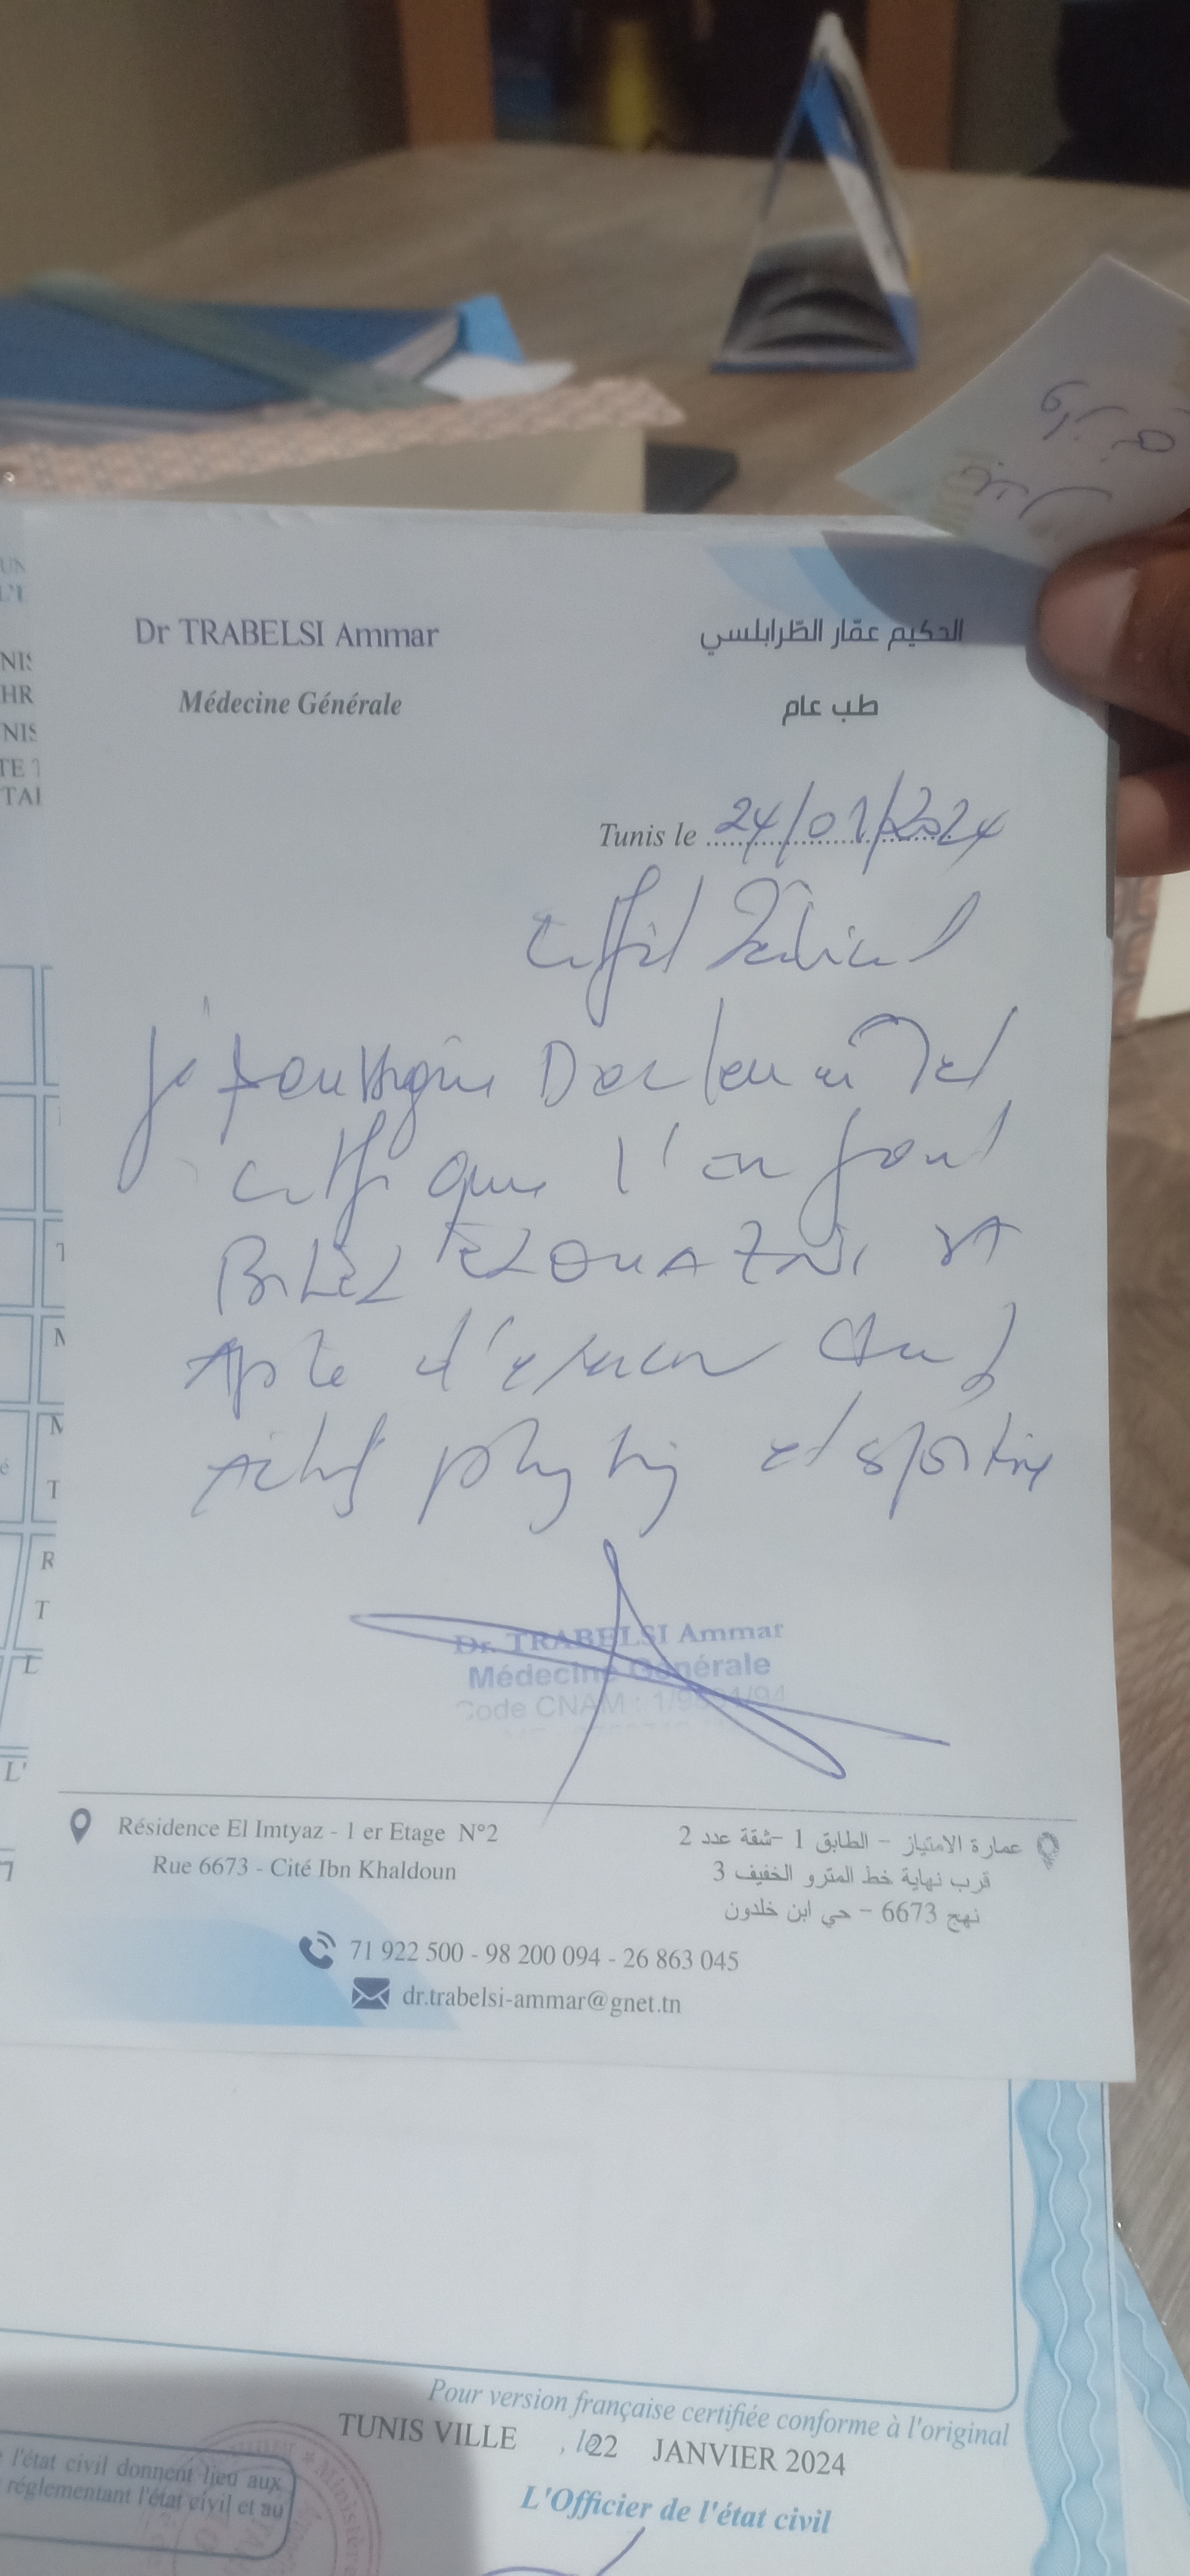 Dr TRABELSI Ammar
الحكيم عمّار الطّرابلسي
Médecine Générale
طب عام
Tunis le 24/01/2024
Certificat Médical
Je soussigné Docteur en Med
certifie que l'enfant
BILEL ELOUAZNI
Apte d'exercer
physique et sportive
Dr. TRABELSI Ammar
Médecine Générale
Code CNAM :
Résidence El Imtyaz - 1 er Etage N°2
Rue 6673 - Cité Ibn Khaldoun
عمارة الامتياز - الطابق 1 -شقة عدد 2
قرب نهاية خط المترو الخفيف 3
نهج 6673 - حي ابن خلدون
71 922 500 - 98 200 094 - 26 863 045
dr.trabelsi-ammar@gnet.tn
Pour version française certifiée conforme à l'original
TUNIS VILLE , le 22 JANVIER 2024
l'état civil donnent lieu aux
réglementant l'état civil et au
L'Officier de l'état civil